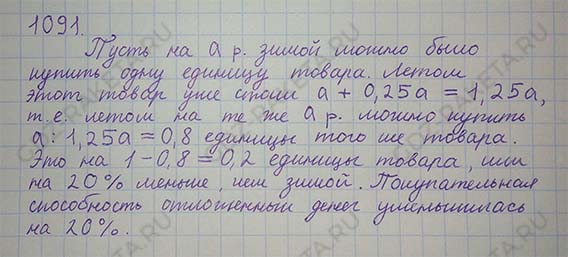 1091.
Пусть на a р. зимой можно было
купить одну единицу товара. Летом
этот товар уже стоил a + 0,25a = 1,25a,
т.е. летом на те же a р. можно купить
a : 1,25a = 0,8 единицы того же товара.
Это на 1 - 0,8 = 0,2 единицы товара, или
на 20% меньше, чем зимой. Покупательная
способность отложенных денег уменьшилась
на 20%.